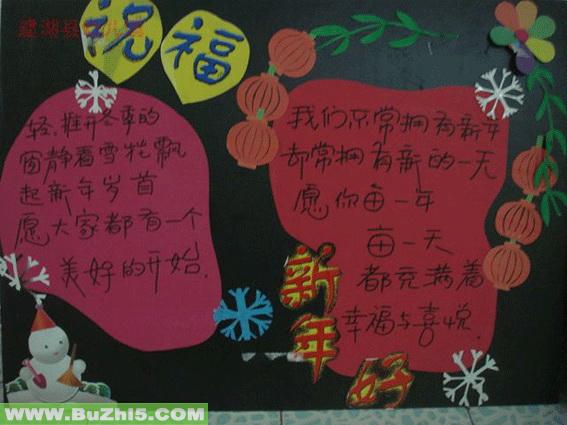 祝福
轻推开冬季的
窗静看雪花飘
起新年岁首
愿大家都有一个
美好的开始.
我们不常拥有新年
却常拥有新的一天
愿你每一年
每一天
都充满着
幸福与喜悦.
新年好
WWW.BuZhi5.COM